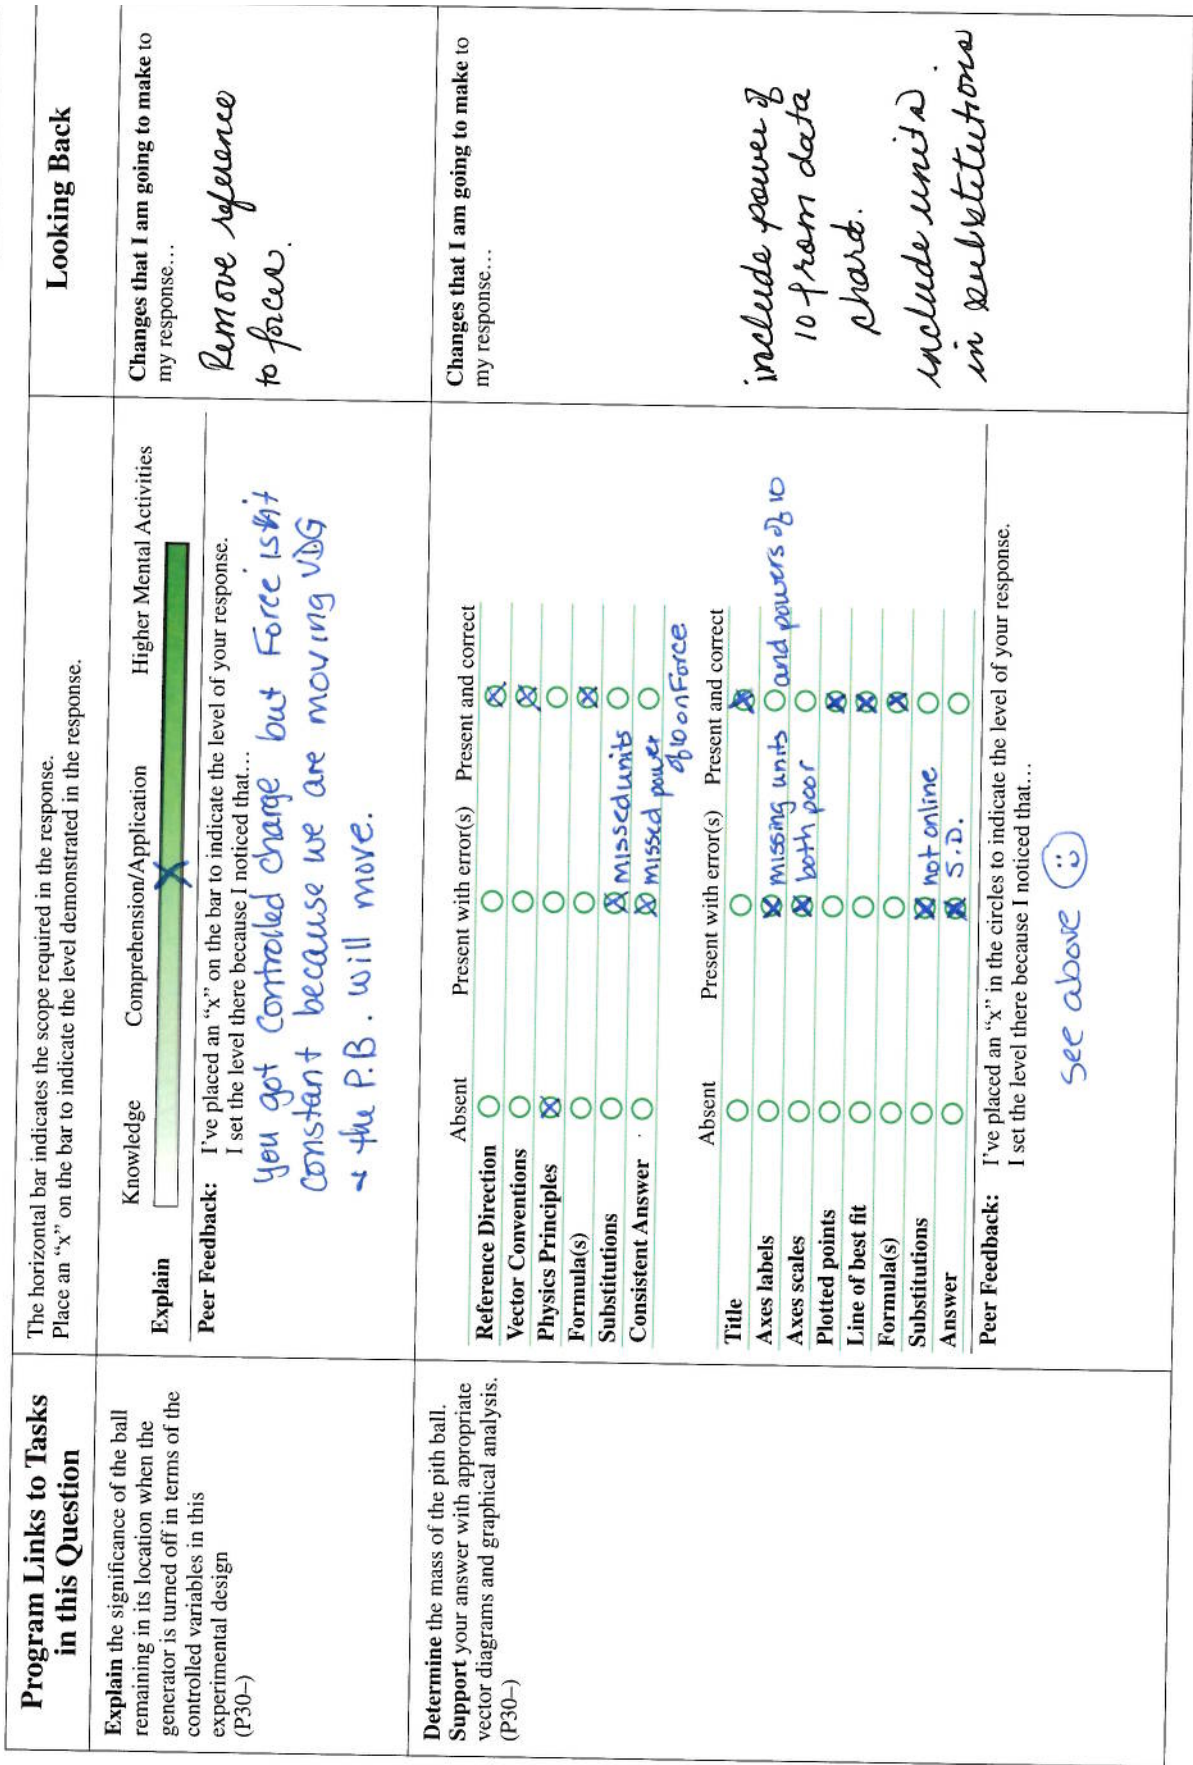 Program Links to Tasks
in this Question
Looking Back
The horizontal bar indicates the scope required in the response.
Place an “x” on the bar to indicate the level demonstrated in the response.
Explain the significance of the ball
remaining in its location when the
generator is turned off in terms of the
controlled variables in this
experimental design
(P30–)
Knowledge Comprehension/Application Higher Mental Activities
Explain
X
Peer Feedback: I’ve placed an “x” on the bar to indicate the level of your response.
I set the level there because I noticed that…
You got controlled charge but Force isn't
constant because we are moving VDG
+ the P.B. will move.
Changes that I am going to make to
my response…
Remove reference
to forces.
Determine the mass of the pith ball.
Support your answer with appropriate
vector diagrams and graphical analysis.
(P30–)
Absent Present with error(s) Present and correct
Reference Direction
Vector Conventions
Physics Principles
Formula(s)
Substitutions missed units
Consistent Answer missed power
of 10 on Force
Absent Present with error(s) Present and correct
Title
Axes labels missing units and powers of 10
Axes scales both poor
Plotted points
Line of best fit
Formula(s)
Substitutions not on line
Answer S.D.
Peer Feedback: I’ve placed an “x” in the circles to indicate the level of your response.
I set the level there because I noticed that…
see above
Changes that I am going to make to
my response…
include power of
10 from data
chart.
include units
in substitutions